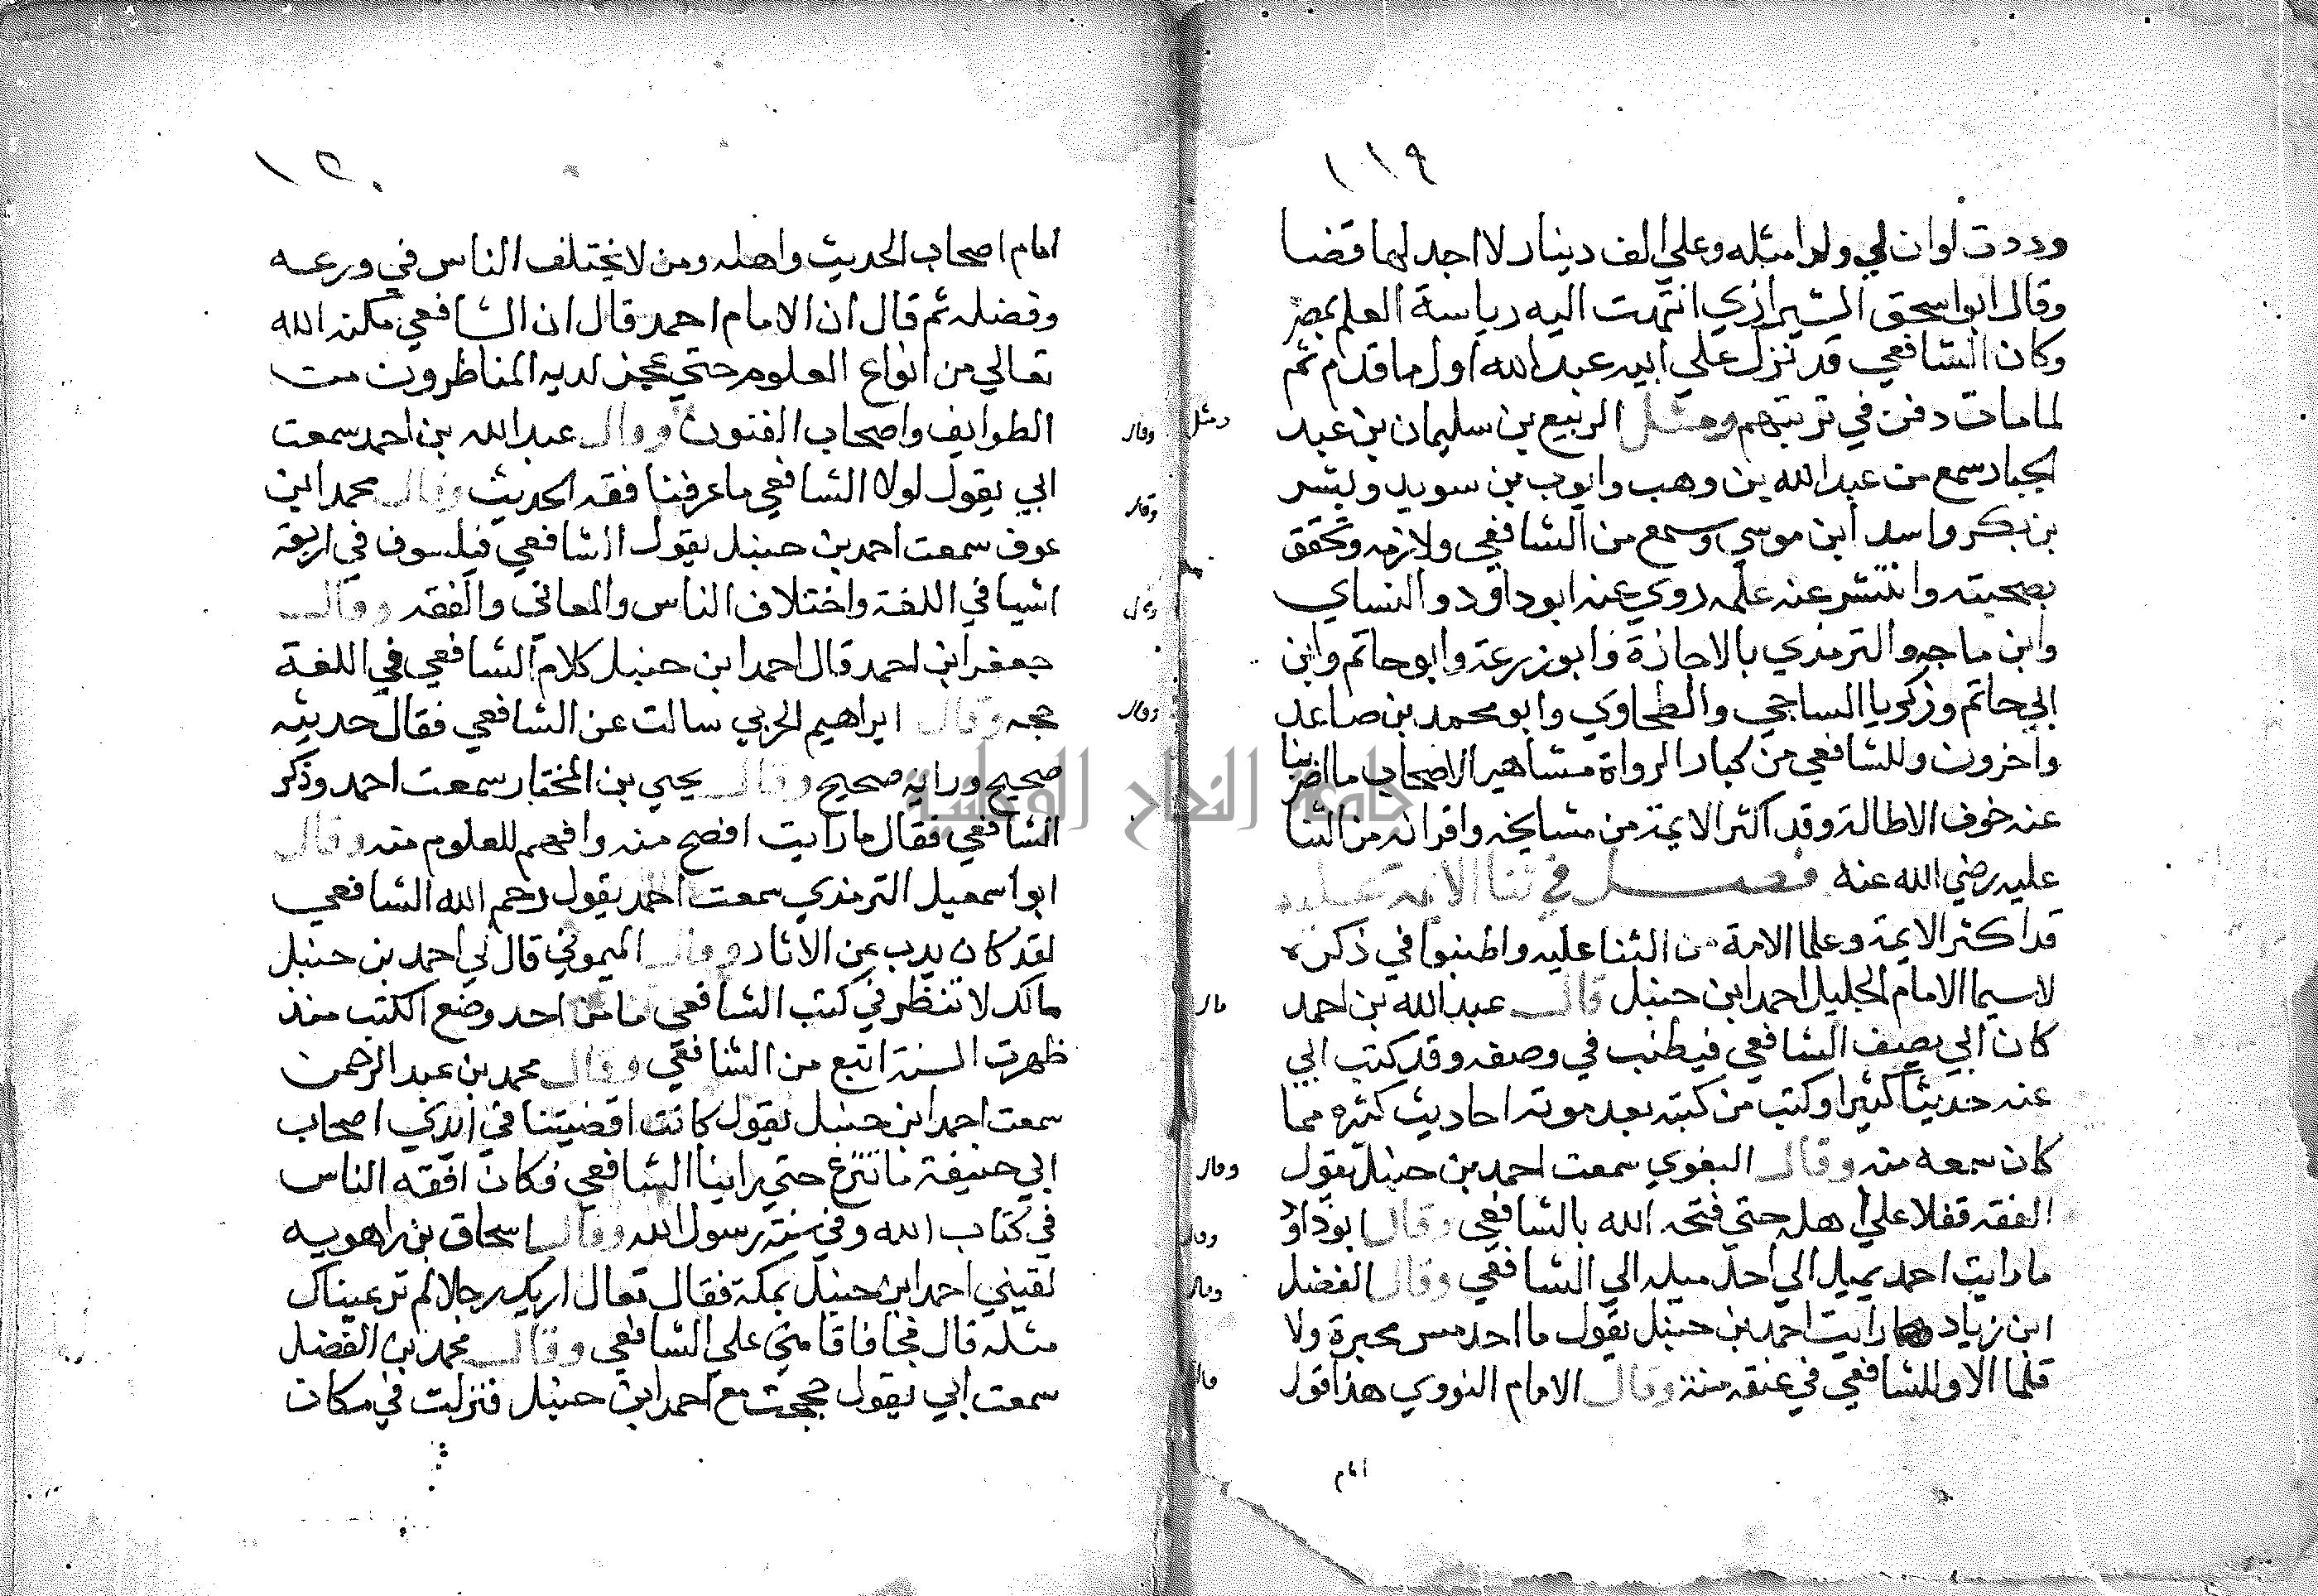 ١١٩
وددت لو ان لي ولدا مثله وعلي الف دينار لا اجد لها قضا
وقال ابو اسحق الشيرازي انتهت اليه رياسة العلم بمصر
وكان الشافعي قد نزل علي ابيه عبد الله اول ما قدم ثم
لما مات دفن في تربتهم ومثل الربيع بن سليمان بن عبد
الجبار سمع من عبد الله بن وهب وايوب بن سويد وبشر
بن بكر واسد ابن موسي وسمع من الشافعي ولازمه وتحقق
بصحبته وانتشر عنه علمه روي عنه ابو داوود والنساي
وابن ماجه والترمذي بالاجازة وابو زرعة وابو حاتم وابن
ابي حاتم وزكريا الساجي والطحاوي وابو محمد بن صاعد
واخرون وللشافعي من كبار الرواة مشاهير الاصحاب ما اضربنا
عنه خوف الاطالة وقد اكثر الايمة من مشايخه واقرانه من الثنا
عليه رضي الله عنه فصل في ثنا الايمة عليه
قد اكثر الايمة وعلما الامة من الثنا عليه واطنبوا في ذكره
لاسيما الامام الجليل احمد ابن حنبل قال عبد الله بن احمد
كان ابي يصف الشافعي فيطنب في وصفه وقد كتب ابي
عنه حديثا كثيرا وكتب من كتبه بعد موته احاديث كثيره مما
كان سمعه منه وقال البغوي سمعت احمد بن حنبل يقول
الفقه قفلا علي اهله حتي فتحه الله بالشافعي وقال ابو داود
ما رايت احمد يميل الي احد ميله الي الشافعي وقال الفضل
ابن زياد ما رايت احمد بن حنبل يقول ما احد مس محبرة ولا
قلما الا وللشافعي في عنقه منة وقال الامام النووي هذا قول
امام
ومثل
قال
وقال
وقال
وقال
قال
١٢٠
امام اصحاب الحديث واهله ومن لا يختلف الناس في ورعه
وفضله ثم قال ان الامام احمد قال ان الشافعي مكنه الله
تعالي من انواع العلوم حتي عجز لديه المناظرون من
الطوايف واصحاب الفنون وقال عبد الله بن احمد سمعت
ابي يقول لولا الشافعي ما عرفنا فقه الحديث وقال محمد ابن
عوف سمعت احمد بن حنبل يقول الشافعي فيلسوف في اربعة
اشيا في اللغة واختلاف الناس والمعاني والفقه وقال
جعفر ابن احمد قال احمد ابن حنبل كلام الشافعي في اللغة
حجه وقال ابراهيم الحربي سالت عن الشافعي فقال حديثه
صحيح ورايه صحيح وقال يحيي بن المختار سمعت احمد وذكر
الشافعي فقال ما رايت افصح منه وافهم للعلوم منه وقال
ابو اسمعيل الترمذي سمعت احمد يقول رحم الله الشافعي
لقد كان يدب عن الاثار وقال الميموني قال لي احمد بن حنبل
مالك لا تنظر في كتب الشافعي ما من احد وضع الكتب منذ
ظهرت السنة اتبع من الشافعي وقال محمد بن عبد الرحمن
سمعت احمد ابن حنبل يقول كانت اقضيتنا في ايدي اصحاب
ابي حنيفة ما تنزع حتي راينا الشافعي فكان افقه الناس
في كتاب الله وفي سنة رسول الله وقال اسحاق بن راهويه
لقيني احمد ابن حنبل بمكة فقال تعال اريك رجلا لم تر عيناك
مثله قال فجا فاقامني علي الشافعي وقال محمد بن الفضل
سمعت ابي يقول حججت مع احمد ابن حنبل فنزلت في مكان
وقال
وقال
وقال
وقال
جامعة النجاح الوطنية